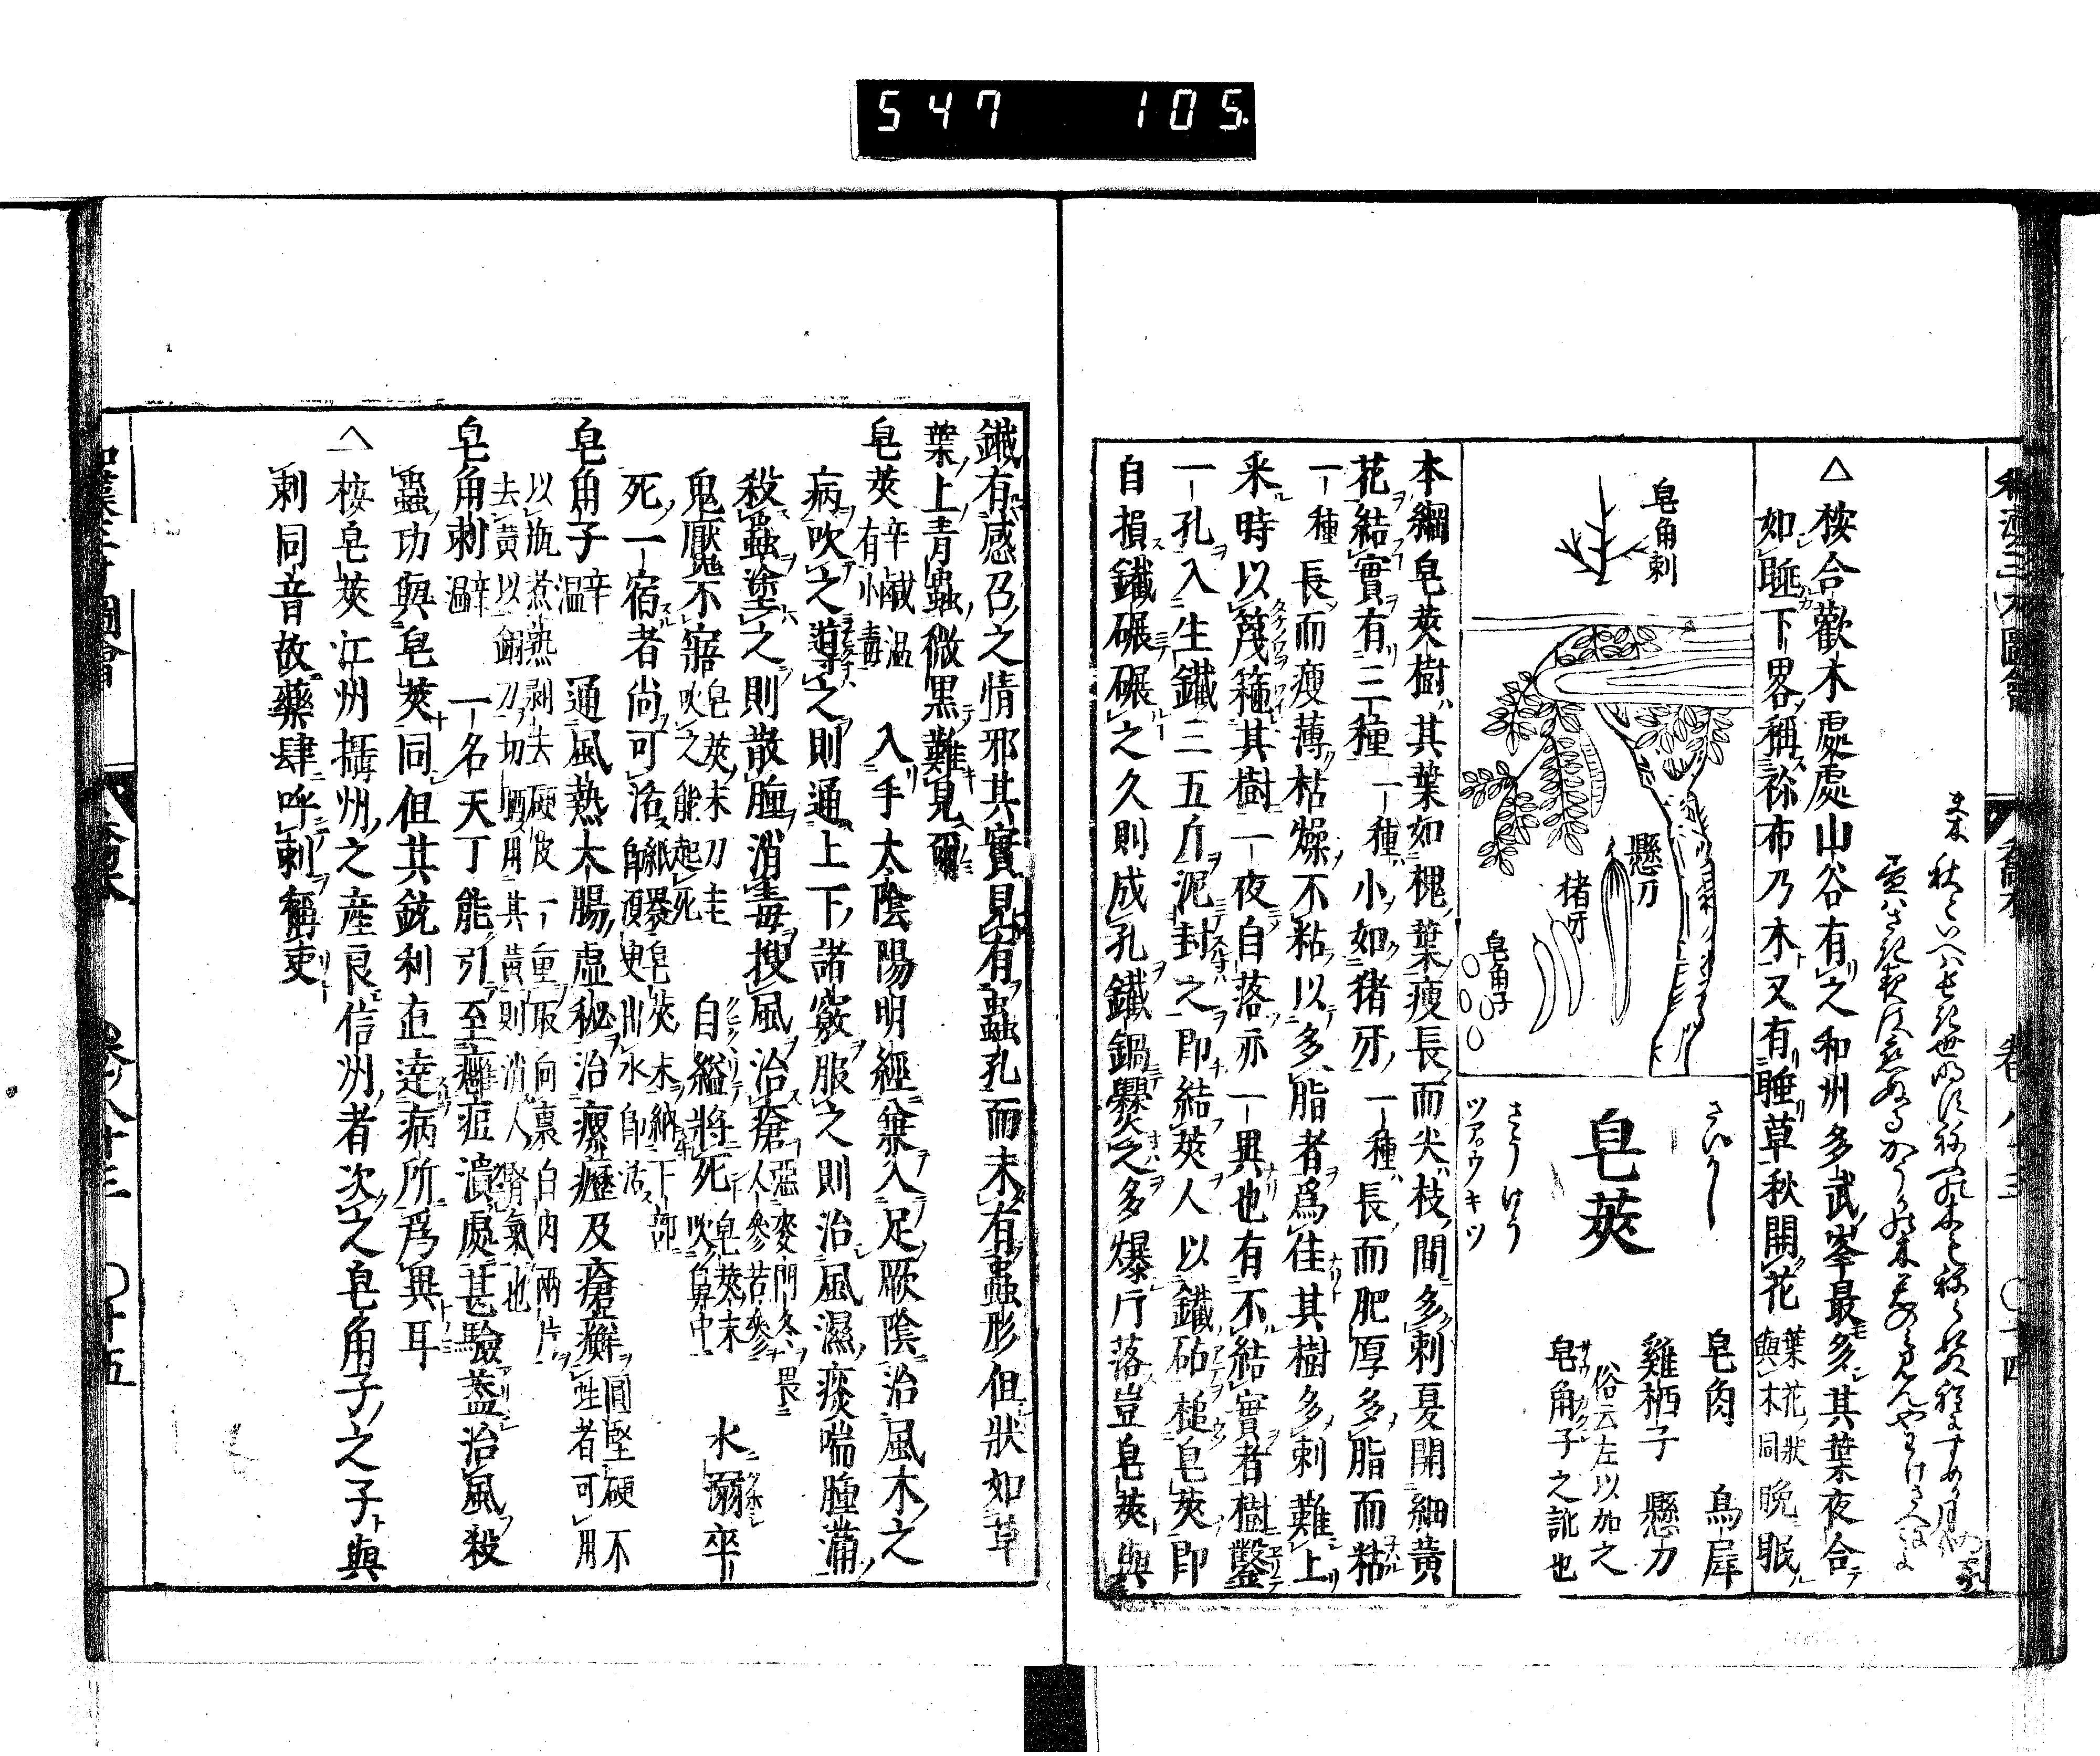 547 105
和漢三才圖會
喬木
卷八十三
〇十四
△桉合歡木處處山谷有之和州多武峯最多其葉夜合
如睡下畧稱祢布乃木又有睡草秋開花葉花狀與木同晚眠
皂角刺
懸刀
猪牙
皂角子
さいかし
皂莢
さうけう
ツアロウキツ
皂角 烏犀
雞栖子 懸刀
俗云左以加之
皂角子之訛也
本綱皂莢樹其葉如槐葉瘦長而尖枝間多刺夏開細黃
花結實有三種一種小如猪牙一種長而肥厚多脂而粘
一種長而瘦薄枯燥不粘以多脂者爲佳其樹多刺難上
采時以篾箍其樹一夜自落亦一異也有不結實者樹鑿
一孔入生鐵三五斤泥封之即結莢人以鐵砧槌皂莢即
自損鐵碾碾之久則成孔鐵鍋爨之多爆片落豈皂莢與
鐵有感召之情邪其實見有蟲孔而未有蟲形但狀如草
葉上青蟲微黒難見爾
皂莢辛鹹温有小毒 入手太陰陽明經兼入足厥陰治風木之
病吹之導之則通上下諸竅服之則治風濕痰喘腫滿
殺蟲塗之則散腫消毒搜風治瘡惡麥門冬畏人參苦參
鬼魘不寤皂莢末刀圭吹之能起死 自縊將死皂莢末吹鼻中 水溺卒
死一宿者尚可活紙裹皂莢末納下部須臾出水即活
皂角子辛温 通風熱大腸虛秘治瘰癧及瘡癬圓堅硬不蛀者可用
以瓶煮熟剥去硬皮一重取向裏白肉兩片
去黃以銅刀切晒用其黃則消人腎氣也
皂角刺辛温 一名天丁能引至癰疽潰處甚驗葢治風殺
蟲功與皂莢同但其鋭利直達病所爲異耳
△桉皂莢江州攝州之產良信州者次之皂角子之子與
刺同音故藥肆呼刺稱吏
卷八十三
〇十五